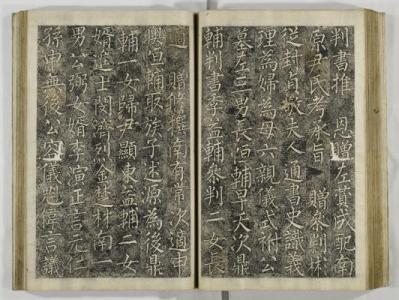 判書推 恩贈左贊成配南
原尹氏考承旨 贈參判
從封貞敬夫人通書史識義
理為婦為母六親儀式祔公
墓左三男長恒輔早夭次鼎
輔判書季益輔參判二女長
適 贈修撰南有常次適申
恒輔取族子述源為後鼎
輔一女歸尹顯東益輔二女
婿進士閔濟烈金材南一
男公弼女婿李演正言元仁
孫申無後公容儀魁偉言議